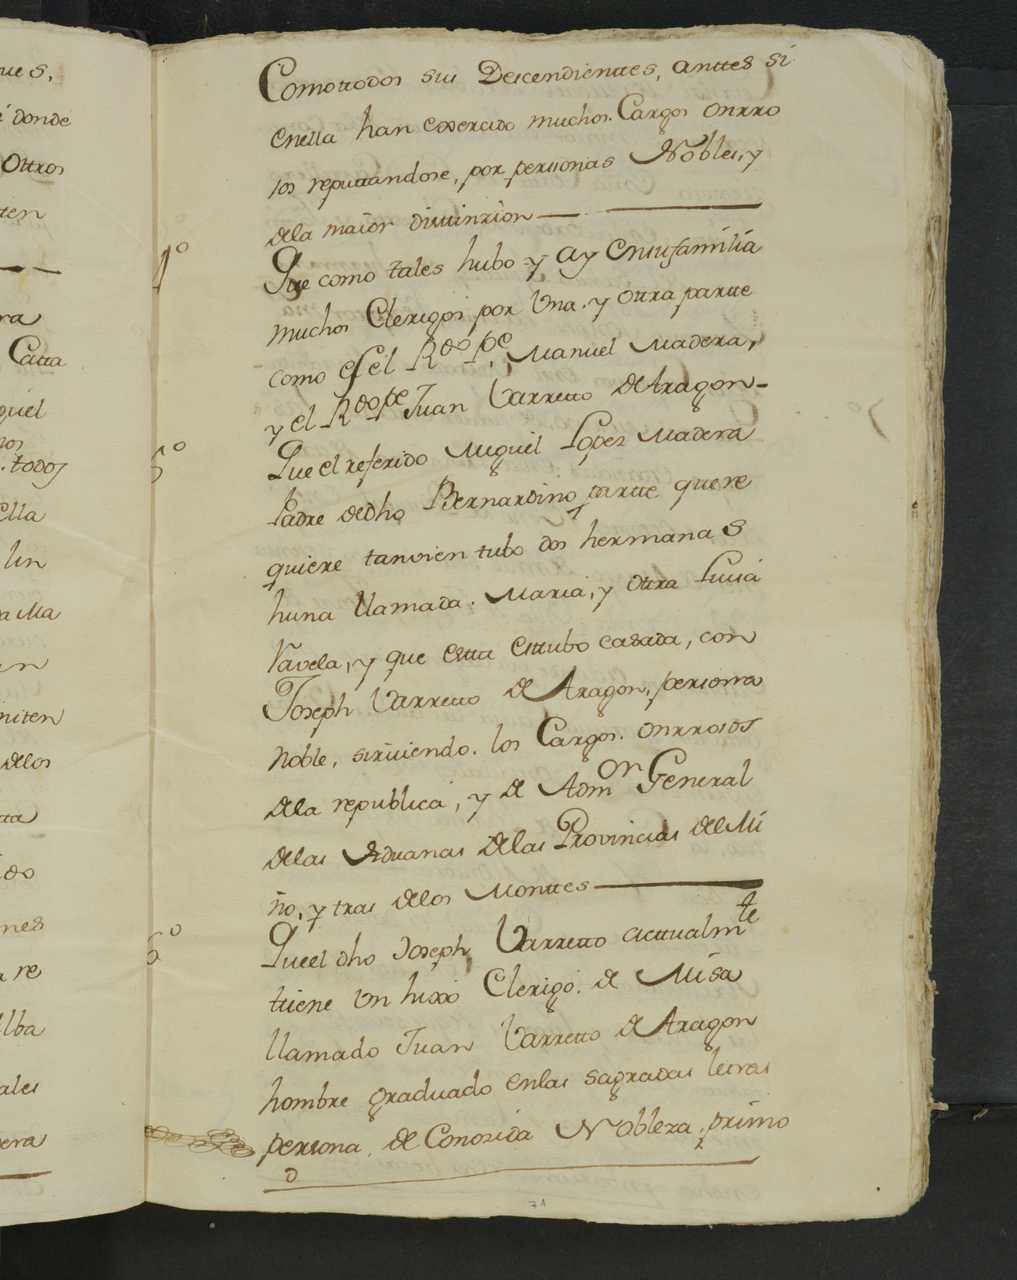 ues,
i donde
Ottros
tten
ra
Catta
quel
nos
todos
ella
lin
a Ma
en
miten
delos
tta
ido
nes
a re
Alba
ales
dera
Comottodos sus Descendienttes, anttes si
enella han exxercido muchos Cargos onrro
sos reputtandose, por personas Nobles, y
dela maior disttinzion
4º
Que como tales hubo y ay ensufamilia
muchos Clerigos por Una y otra partte
como es el Rdo Pe, Manuel Madera,
y el Rdo Pe Juan Varretto de Aragon
5º
Que el referido Miguel Lopez Madera
Padre dedho Bernardino partte quere
quiere tanvien tubo dos hermanas
huna llamada. Maria, y Otra Lucia
Vavela, y que Esta esttubo casada, con
Joseph Varretto de Aragon, persona
Noble, sirviendo. los Cargos. onrrosos
dela republica, y de Admon General
delas Aduanas delas Provincias del Mi
ño, y tras delos Monttes
6º
Queel dho Joseph Varretto acttualmte
tiene Un hixo Clerigo. de Misa
llamado Juan Varretto de Aragon
hombre graduado enlas sagradas letras
persona. de Conozida Nobleza, primo
71